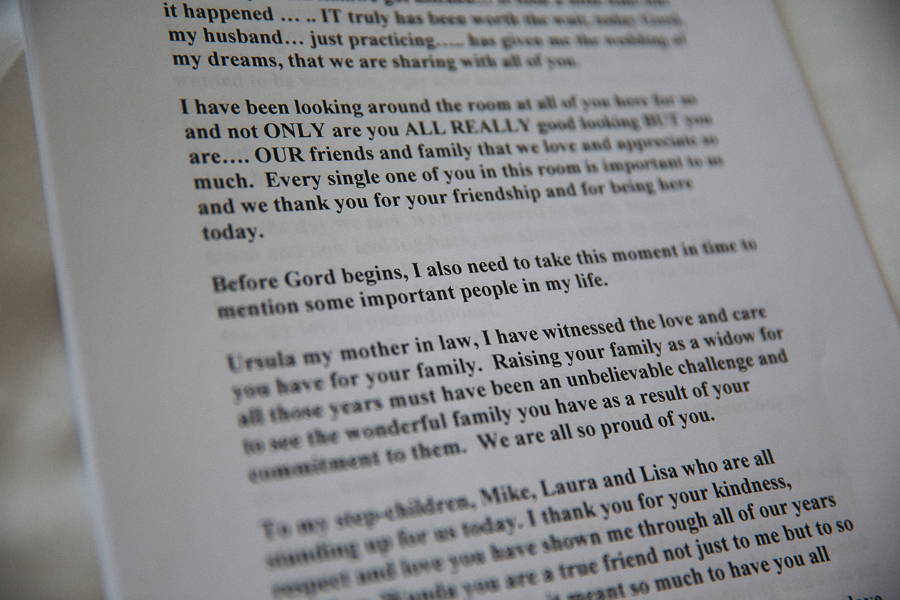 it happened … .. IT truly has been worth the wait, today Gord,
my husband… just practicing….. has given me the wedding of
my dreams, that we are sharing with all of you.
I have been looking around the room at all of you here for us
and not ONLY are you ALL REALLY good looking BUT you
are…. OUR friends and family that we love and appreciate so
much.  Every single one of you in this room is important to us
and we thank you for your friendship and for being here
today.
Before Gord begins, I also need to take this moment in time to
mention some important people in my life.
Ursula my mother in law, I have witnessed the love and care
you have for your family.  Raising your family as a widow for
all those years must have been an unbelievable challenge and
to see the wonderful family you have as a result of your
commitment to them.  We are all so proud of you.
To my step-children, Mike, Laura and Lisa who are all
standing up for us today. I thank you for your kindness,
respect and love you have shown me through all of our years
you are a true friend not just to me but to so
it meant so much to have you all